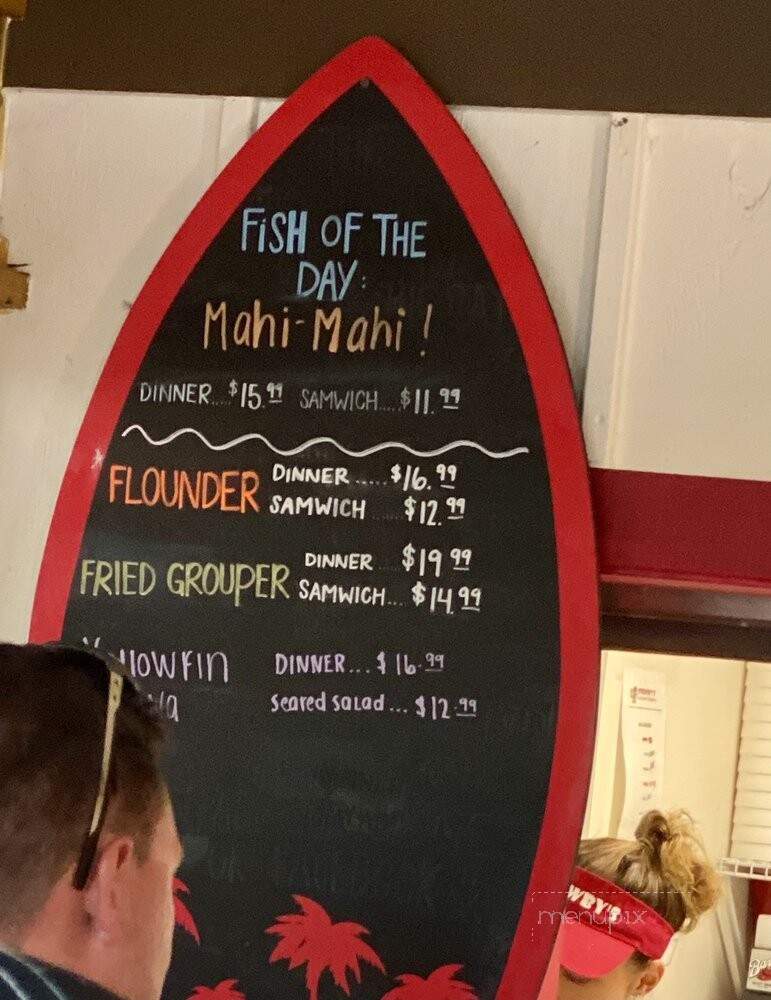 FiSH OF THE
DAY:
Mahi-Mahi!
DINNER...$15.99 SAMWICH.....$11.99
FLOUNDER DINNER.....$16.99
SAMWICH ...$12.99
FRIED GROUPER DINNER...$19 99
SAMWICH...$14.99
DINNER...$16.99
Seared salad...$12.99
WBY'S
menupix